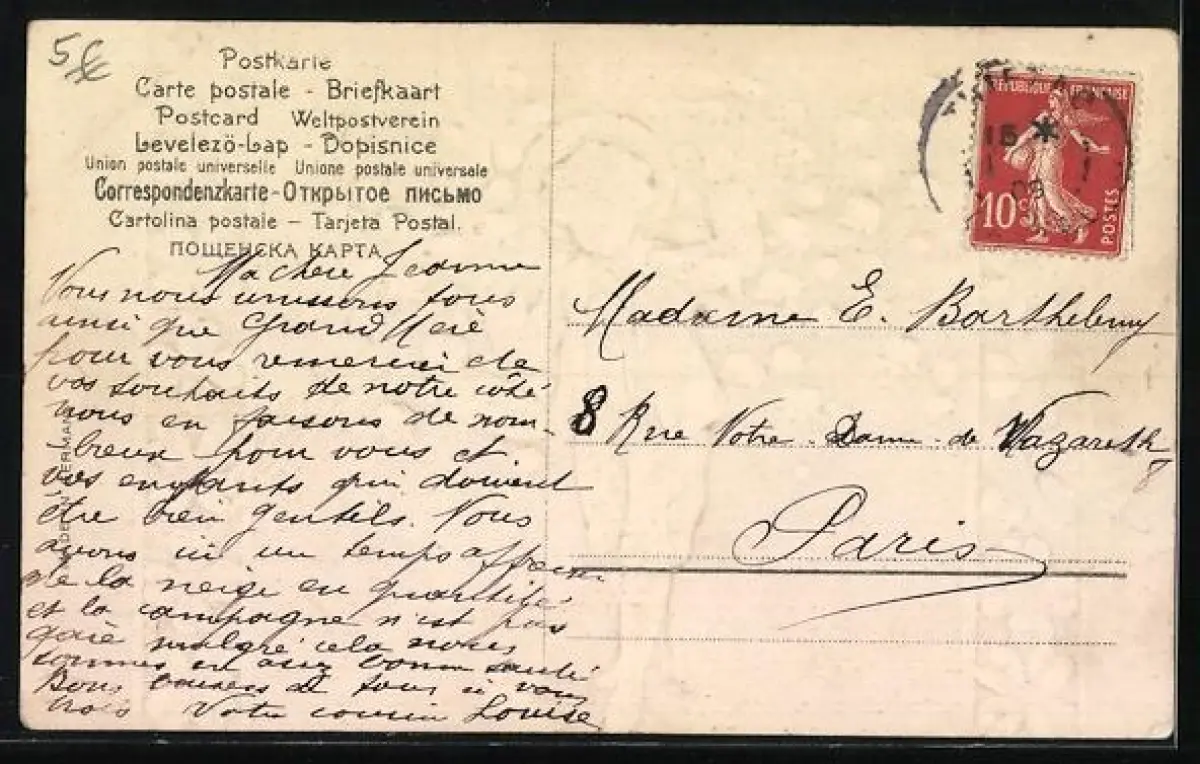 5€
Postkarte
Carte postale - Briefkaart
Postcard Weltpostverein
Levelezö-Lap - Dopisnice
Union postale universelle Unione postale universale
Correspondenzkarte - Открытое письмо
Cartolina postale – Tarjeta Postal.
ПОЩЕНСКА КАРТА
Ma chère Jeanne
Nous nous unissons tous
ainsi que Grand Mère
pour vous remercier de
vos souhaits de notre côté
nous en faisons de nom-
breux pour vous et
vos enfants qui doivent
être bien gentils. Nous
avons ici un temps affreux
de la neige en quantité
et la campagne n'est pas
gaie malgré cela nous
sommes en assez bonne santé
Bons baisers de tous à vous
trois Votre cousine Louise
REPUBLIQUE FRANÇAISE
15 *
10 c
POSTES
Madame E. Barthelemy
8 Rue Notre-Dame-de Nazareth
Paris